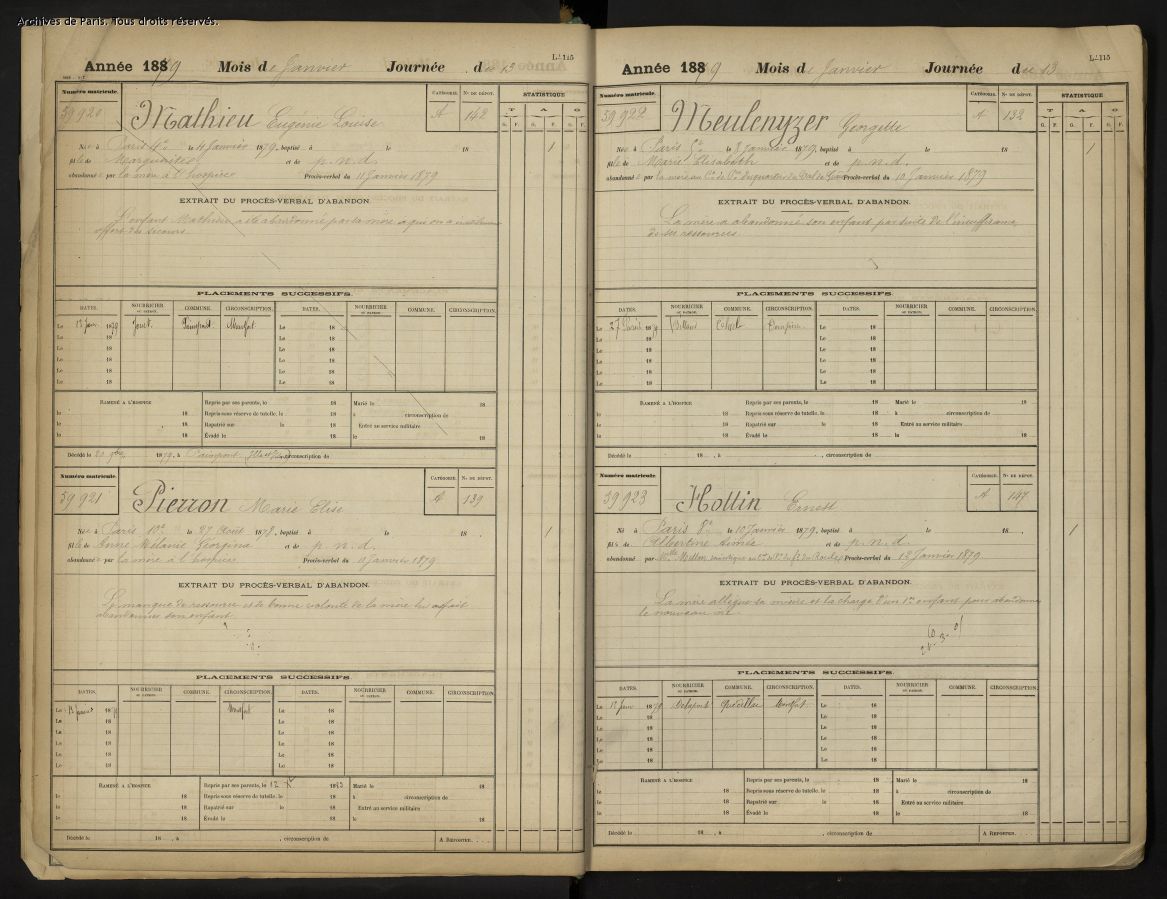 Archives de Paris. Tous droits réservés.
Année 1879 Mois de Janvier Journée du 13
Numéro matricule.
39 920
Mathieu Eugénie Louise
CATÉGORIE. A
N° DE DÉPOT. 142
STATISTIQUE
T A O
G. F. G. F. G. F.
Née à Paris 4e le 4 Janvier 1879, baptisé à le 18 1
fille de Marguerite et de p.n.d.
abandonnée par la mère à l'hospice Procès-verbal du 11 Janvier 1879
EXTRAIT DU PROCÈS-VERBAL D'ABANDON.
L'enfant Mathieu a été abandonnée par sa mère à qui on a
offert des secours.
PLACEMENTS SUCCESSIFS.
DATES. NOURRICIER OU PATRON. COMMUNE. CIRCONSCRIPTION. DATES. NOURRICIER OU PATRON. COMMUNE. CIRCONSCRIPTION.
Le 13 Janv 1879 Jouet Paimpont Montfort Le 18
Le 18 Le 18
Le 18 Le 18
Le 18 Le 18
Le 18 Le 18
Le 18 Le 18
RAMENÉ A L'HOSPICE Repris par ses parents, le 18 Marié le 18
le 18 Repris sous réserve de tutelle, le 18 à circonscription de
le 18 Rapatrié sur le 18 Entré au service militaire
le 18 Évadé le 18 le 18
Décédé le 20 9bre 1879, à Paimpont circonscription de
Numéro matricule.
39 921
Pierron Marie Elise
CATÉGORIE. A
N° DE DÉPOT. 139
Née à Paris 10e le 27 Août 1878, baptisé à le 18 1
fille de Anne Mélanie Georgina et de p.n.d.
abandonnée par la mère à l'hospice Procès-verbal du 11 Janvier 1879
EXTRAIT DU PROCÈS-VERBAL D'ABANDON.
Le manque de ressources et de bonne volonté de la mère lui a fait
abandonner son enfant.
PLACEMENTS SUCCESSIFS.
DATES. NOURRICIER OU PATRON. COMMUNE. CIRCONSCRIPTION. DATES. NOURRICIER OU PATRON. COMMUNE. CIRCONSCRIPTION.
Le 13 Janvier 1879 Montfort Le 18
Le 18 Le 18
Le 18 Le 18
Le 18 Le 18
Le 18 Le 18
Le 18 Le 18
RAMENÉ A L'HOSPICE Repris par ses parents, le 12 Xbre 1883 Marié le 18
le 18 Repris sous réserve de tutelle, le 18 à circonscription de
le 18 Rapatrié sur le 18 Entré au service militaire
le 18 Évadé le 18 le 18
Décédé le 18 , à , circonscription de A REPORTER.
Année 1879 Mois de Janvier Journée du 13
Numéro matricule.
39 922
Meulenyzer Georgette
CATÉGORIE. A
N° DE DÉPOT. 132
STATISTIQUE
T A O
G. F. G. F. G. F.
Née à Paris 5e le 8 Janvier 1879, baptisé à le 18 1
fille de Marie Elisabeth et de p.n.d.
abandonnée par la mère au Procès-verbal du 10 Janvier 1879
EXTRAIT DU PROCÈS-VERBAL D'ABANDON.
La mère a abandonné son enfant par suite de l'insuffisance
de ses ressources.
PLACEMENTS SUCCESSIFS.
DATES. NOURRICIER OU PATRON. COMMUNE. CIRCONSCRIPTION. DATES. NOURRICIER OU PATRON. COMMUNE. CIRCONSCRIPTION.
Le 1879 Le 18
Le 18 Le 18
Le 18 Le 18
Le 18 Le 18
Le 18 Le 18
Le 18 Le 18
RAMENÉ A L'HOSPICE Repris par ses parents, le 18 Marié le 18
le 18 Repris sous réserve de tutelle, le 18 à circonscription de
le 18 Rapatrié sur le 18 Entré au service militaire
le 18 Évadé le 18 le 18
Décédé le 18 , à , circonscription de
Numéro matricule.
39 923
Hottin Ernest
CATÉGORIE. A
N° DE DÉPOT. 147
Né à Paris 8e le 10 Janvier 1879, baptisé à le 18 1
fils de Albertine Aimée et de p.n.d.
abandonné par Procès-verbal du 12 Janvier 1879
EXTRAIT DU PROCÈS-VERBAL D'ABANDON.
La mère allègue sa misère et la charge d'un 1er enfant pour abandonner
le nouveau né.
PLACEMENTS SUCCESSIFS.
DATES. NOURRICIER OU PATRON. COMMUNE. CIRCONSCRIPTION. DATES. NOURRICIER OU PATRON. COMMUNE. CIRCONSCRIPTION.
Le 13 Janv 1879 Montfort Le 18
Le 18 Le 18
Le 18 Le 18
Le 18 Le 18
Le 18 Le 18
Le 18 Le 18
RAMENÉ A L'HOSPICE Repris par ses parents, le 18 Marié le 18
le 18 Repris sous réserve de tutelle, le 18 à circonscription de
le 18 Rapatrié sur le 18 Entré au service militaire
le 18 Évadé le 18 le 18
Décédé le 18 , à , circonscription de A REPORTER.